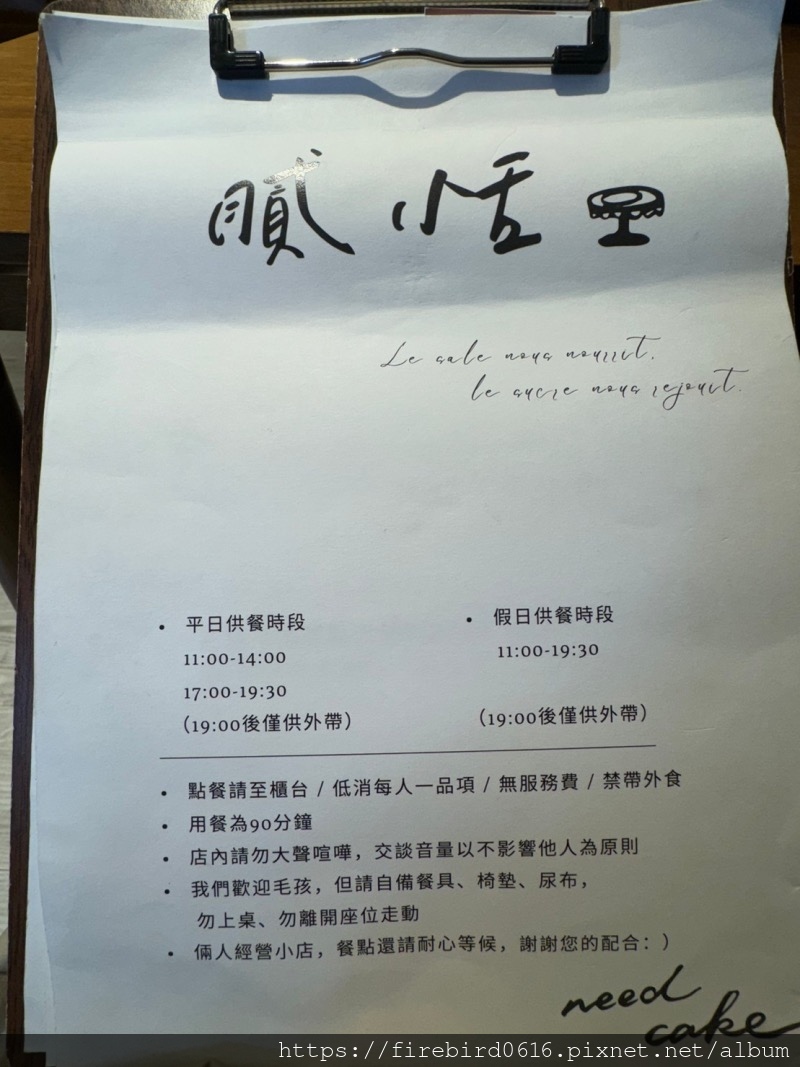 膩小恬
Le sale nous nourrit,
le sucre nous rejouit.
• 平日供餐時段
11:00-14:00
17:00-19:30
（19:00後僅供外帶）
• 假日供餐時段
11:00-19:30
（19:00後僅供外帶）
• 點餐請至櫃台 / 低消每人一品項 / 無服務費 / 禁帶外食
• 用餐為90分鐘
• 店內請勿大聲喧嘩，交談音量以不影響他人為原則
• 我們歡迎毛孩，但請自備餐具、椅墊、尿布，
勿上桌、勿離開座位走動
• 倆人經營小店，餐點還請耐心等候，謝謝您的配合：）
need
cake
https://firebird0616.pixnet.net/album